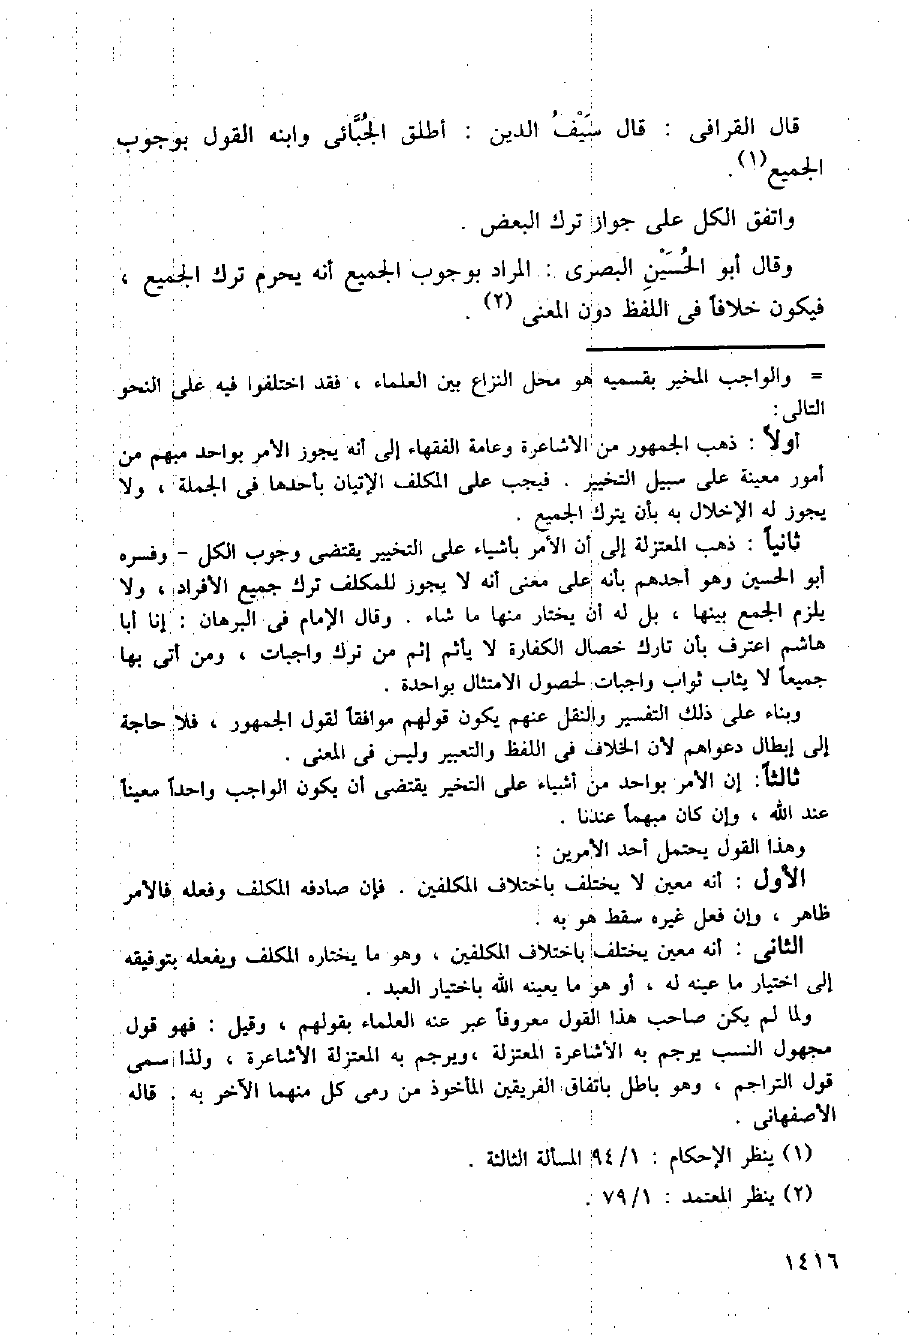 قال القرافى : قال سَيْفُ الدين : أطلق الجُبَّائى وابنه القول بوجوب
الجميع(١).
واتفق الكل على جواز ترك البعض .
وقال أبو الحُسَيْنِ البصرى : المراد بوجوب الجميع أنه يحرم ترك الجميع ،
فيكون خلافاً فى اللفظ دون المعنى (٢) .
= والواجب المخير بقسميه هو محل النزاع بين العلماء ، فقد اختلفوا فيه على النحو
التالى:
أولاً : ذهب الجمهور من الأشاعرة وعامة الفقهاء إلى أنه يجوز الأمر بواحد مبهم من
أمور معينة على سبيل التخيير . فيجب على المكلف الإتيان بأحدها فى الجملة ، ولا
يجوز له الإخلال به بأن يترك الجميع .
ثانياً : ذهب المعتزلة إلى أن الأمر بأشياء على التخيير يقتضى وجوب الكل - وفسره
أبو الحسين وهو أحدهم بأنه على معنى أنه لا يجوز للمكلف ترك جميع الأفراد ، ولا
يلزم الجمع بينها ، بل له أن يختار منها ما شاء . وقال الإمام فى البرهان : إنا أبا
هاشم اعترف بأن تارك خصال الكفارة لا يأثم إثم من ترك واجبات ، ومن أتى بها
جميعاً لا يثاب ثواب واجبات لحصول الامتثال بواحدة .
وبناء على ذلك التفسير والنقل عنهم يكون قولهم موافقاً لقول الجمهور ، فلا حاجة
إلى إبطال دعواهم لأن الخلاف فى اللفظ والتعبير وليس فى المعنى .
ثالثاً: إن الأمر بواحد من أشياء على التخير يقتضى أن يكون الواجب واحداً معيناً
عند الله ، وإن كان مبهماً عندنا .
وهذا القول يحتمل أحد الأمرين :
الأول : أنه معين لا يختلف باختلاف المكلفين . فإن صادفه المكلف وفعله فالأمر
ظاهر ، وإن فعل غيره سقط هو به .
الثانى : أنه معين يختلف باختلاف المكلفين ، وهو ما يختاره المكلف ويفعله بتوفيقه
إلى اختيار ما عينه له ، أو هو ما يعينه الله باختيار العبد .
ولما لم يكن صاحب هذا القول معروفاً عبر عنه العلماء بقولهم ، وقيل : فهو قول
مجهول النسب يرجم به الأشاعرة المعتزلة ،ويرجم به المعتزلة الأشاعرة ، ولذا سمى
قول التراجم ، وهو باطل باتفاق الفريقين المأخوذ من رمى كل منهما الآخر به . قاله
الأصفهانى .
(١) ينظر الإحكام : ٩٤/١ المسألة الثالثة .
(٢) ينظر المعتمد : ٧٩/١ .
١٤١٦